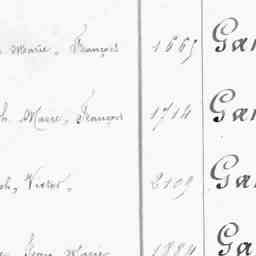 Marie, François 1665 Gar
ph. Marie, François 1714 Gar
ph, Victor, 2109 Gar
Jean Marie 1884 Gar